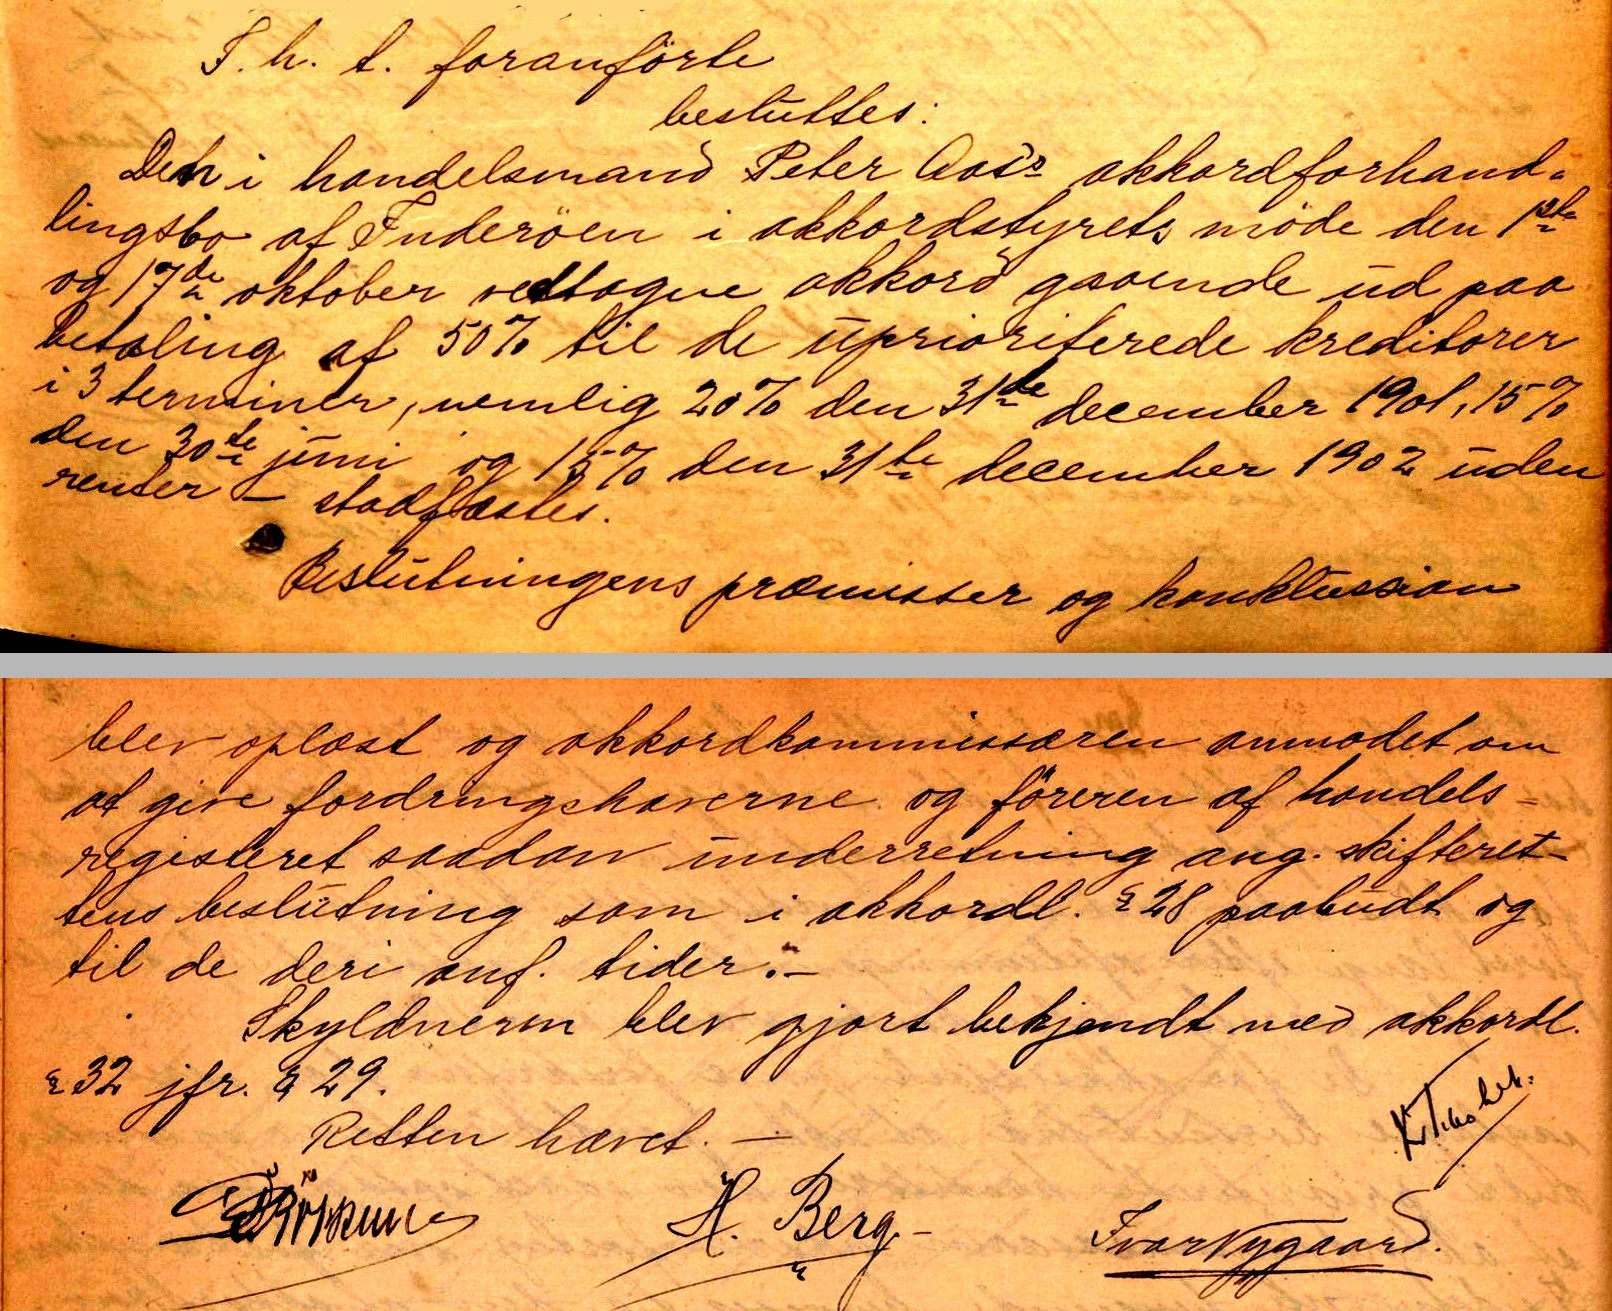 I. h. t. foranförte
besluttes:
Den i handelsmand Peter Aas's akkordforhand-
lingsbo af Inderöen i akkordstyrets möde den 1ste
og 17de oktober vedtagne akkord gaaende ud paa
betaling af 50% til de uprioriterede kreditorer
i 3 terminer, nemlig 20% den 31te december 1901, 15%
den 30te juni og 15% den 31te december 1902 uden
renter – stadfæstes.
Beslutningens præmisser og konklussion
blev oplæst og akkordkommissæren anmodet om
at give fordringshaverne og föreren af handels-
registeret saadan underretning ang. skifteret-
tens beslutning som i akkordl. § 28 paabudt og
til de deri anf. tider. –
Skyldneren blev gjort bekjendt med akkordl.
§ 32 jfr. § 29.
Retten hævet. –
H. Berg
Ivar Nygaard.